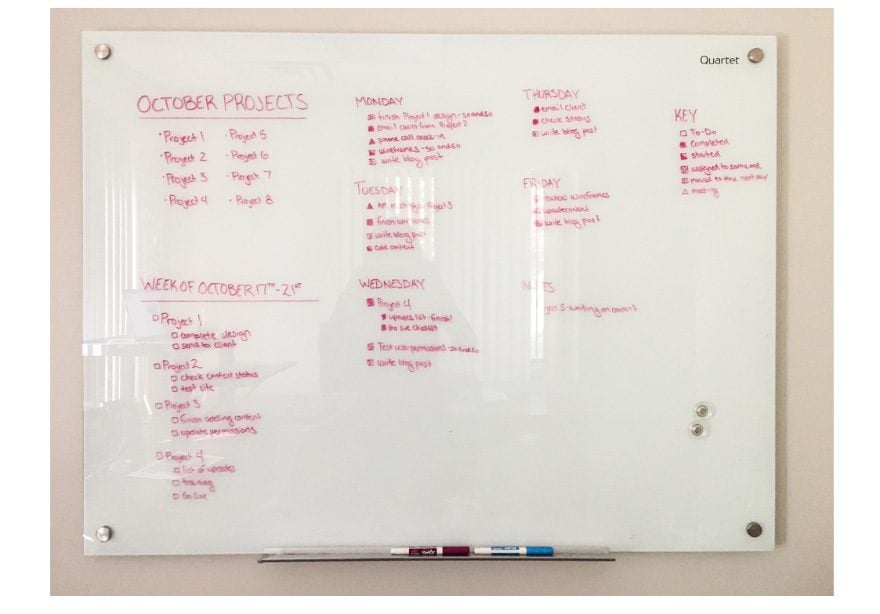 Quartet
OCTOBER PROJECTS
• Project 1
• Project 2
• Project 3
• Project 4
• Project 5
• Project 6
• Project 7
• Project 8
WEEK OF OCTOBER 17TH - 21ST
Project 1
complete design
send to client
Project 2
check content status
test site
Project 3
finish adding content
update permissions
Project 4
list of updates
training
Go live
MONDAY
finish Project 1 design - so and so
email client from Project 2
phone call check-in
wireframes - so and so
write blog post
TUESDAY
meeting Project 3
finish
write blog post
add content
WEDNESDAY
Project 4
updates list - finish!
Go live checklist
Test user permissions - so and so
write blog post
THURSDAY
email client
check status
write blog post
FRIDAY
wireframes
update content
write blog post
NOTES:
5 - waiting on content
KEY
To-Do
completed
started
assigned to someone
moved to the next day
meeting